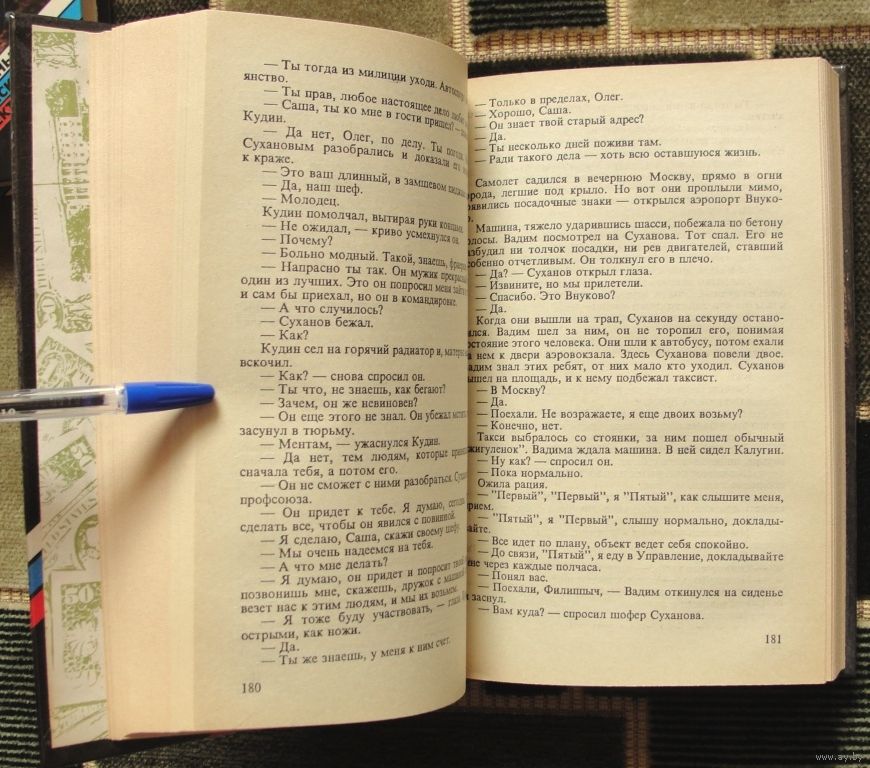 — Ты тогда из милиции уходи. Автоспорт
янство.
— Ты прав, любое настоящее дело любит
— Саша, ты ко мне в гости пришел? —
Кудин.
— Да нет, Олег, по делу. Ты
Сухановым разобрались и доказали его
к краже.
— Это ваш длинный, в замшевом
— Да, наш шеф.
— Молодец.
Кудин помолчал, вытирая руки
— Не ожидал, — криво усмехнулся он.
— Почему?
— Больно модный. Такой, знаешь,
— Напрасно ты так. Он мужик
один из лучших. Это он попросил меня
и сам бы приехал, но он в командировке.
— А что случилось?
— Суханов бежал.
— Как?
Кудин сел на горячий радиатор и,
вскочил.
— Как? — снова спросил он.
— Ты что, не знаешь, как бегают?
— Зачем, он же невиновен?
— Он еще этого не знал. Он убежал
засунул в тюрьму.
— Ментам, — ужаснулся Кудин.
— Да нет, тем людям, которые
сначала тебя, а потом его.
— Он не сможет с ними разобраться.
профсоюза.
— Он придет к тебе. Я думаю,
сделать все, чтобы он явился с повинной.
— Я сделаю, Саша, скажи своему шефу.
— Мы очень надеемся на тебя.
— А что мне делать?
— Я думаю, он придет и попросит
позвонишь мне, скажешь, дружок с машиной
везет нас к этим людям, и мы их возьмем.
— Я тоже буду участвовать, —
острыми, как ножи.
— Да.
— Ты же знаешь, у меня к ним счет.
180
— Только в пределах, Олег.
— Хорошо, Саша.
— Он знает твой старый адрес?
— Да.
— Ты несколько дней поживи там.
— Ради такого дела — хоть всю оставшуюся жизнь.
Самолет садился в вечернюю Москву, прямо в огни
орода, легшие под крыло. Но вот они проплыли мимо,
оявились посадочные знаки — открылся аэропорт Внуко-
о.
Машина, тяжело ударившись шасси, побежала по бетону
олосы. Вадим посмотрел на Суханова. Тот спал. Его не
азбудил ни толчок посадки, ни рев двигателей, ставший
собенно отчетливым. Он толкнул его в плечо.
— Да? — Суханов открыл глаза.
— Извините, но мы прилетели.
— Спасибо. Это Внуково?
— Да.
Когда они вышли на трап, Суханов на секунду остано-
ился. Вадим шел за ним, он не торопил его, понимая
остояние этого человека. Они шли к автобусу, потом ехали
а нем к двери аэровокзала. Здесь Суханова повели двое.
адим знал этих ребят, от них мало кто уходил. Суханов
ышел на площадь, и к нему подбежал таксист.
— В Москву?
— Да.
— Поехали. Не возражаете, я еще двоих возьму?
— Конечно, нет.
Такси выбралось со стоянки, за ним пошел обычный
жигуленок". Вадима ждала машина. В ней сидел Калугин.
— Ну как? — спросил он.
— Пока нормально.
Ожила рация.
— "Первый", "Первый", я "Пятый", как слышите меня,
рием.
— "Пятый", я "Первый", слышу нормально, доклады-
айте.
— Все идет по плану, объект ведет себя спокойно.
— До связи, "Пятый", я еду в Управление, докладывайте
не через каждые полчаса.
— Понял вас.
— Поехали, Филиппыч, — Вадим откинулся на сиденье
заснул.
— Вам куда? — спросил шофер Суханова.
181
www.ay.by